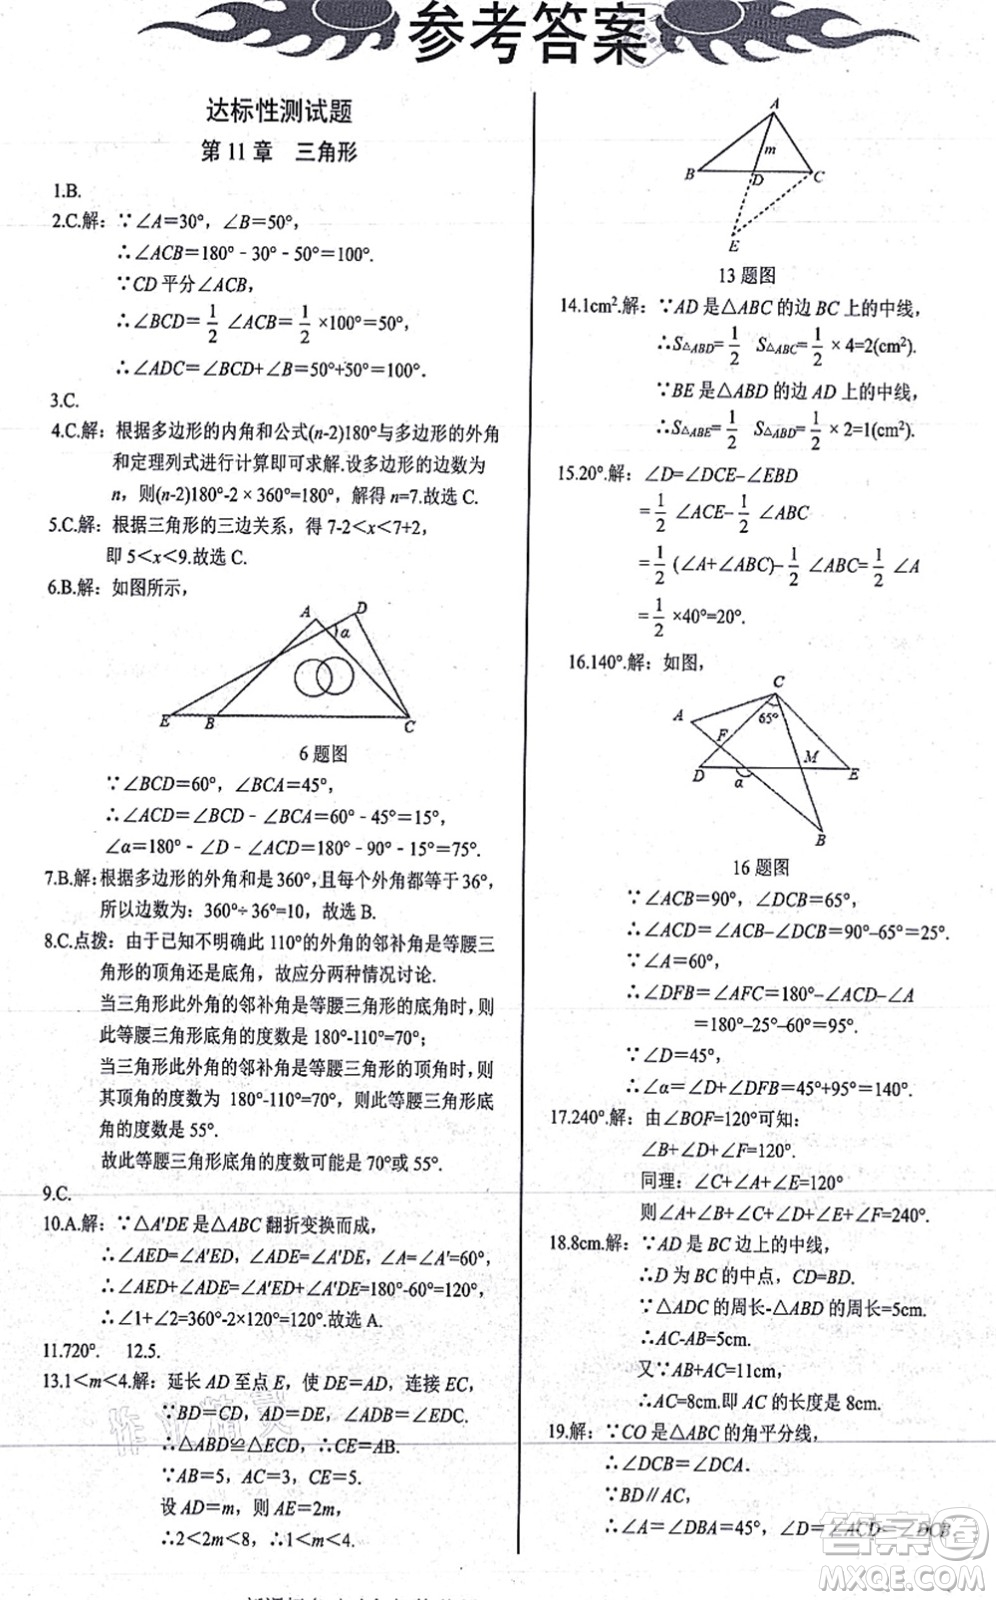 参考答案
达标性测试题
第11章 三角形
1.B.
2.C.解：∵∠A=30°，∠B=50°，
∴∠ACB=180°-30°-50°=100°.
∵CD平分∠ACB，
∴∠BCD=1/2 ∠ACB=1/2 ×100°=50°，
∴∠ADC=∠BCD+∠B=50°+50°=100°.
3.C.
4.C.解：根据多边形的内角和公式(n-2)180°与多边形的外角
和定理列式进行计算即可求解.设多边形的边数为
n，则(n-2)180°-2×360°=180°，解得n=7.故选C.
5.C.解：根据三角形的三边关系，得7-2<x<7+2，
即5<x<9.故选C.
6.B.解：如图所示，
A
D
α
E
B
C
6题图
∵∠BCD=60°，∠BCA=45°，
∴∠ACD=∠BCD-∠BCA=60°-45°=15°，
∠α=180°-∠D-∠ACD=180°-90°-15°=75°.
7.B.解：根据多边形的外角和是360°，且每个外角都等于36°，
所以边数为：360°÷36°=10，故选B.
8.C.点拨：由于已知不明确此110°的外角的邻补角是等腰三
角形的顶角还是底角，故应分两种情况讨论.
当三角形此外角的邻补角是等腰三角形的底角时，则
此等腰三角形底角的度数是180°-110°=70°；
当三角形此外角的邻补角是等腰三角形的顶角时，则
其顶角的度数为180°-110°=70°，则此等腰三角形底
角的度数是55°.
故此等腰三角形底角的度数可能是70°或55°.
9.C.
10.A.解：∵△A'DE是△ABC翻折变换而成，
∴∠AED=∠A'ED，∠ADE=∠A'DE，∠A=∠A'=60°，
∴∠AED+∠ADE=∠A'ED+∠A'DE=180°-60°=120°，
∴∠1+∠2=360°-2×120°=120°.故选A.
11.720°. 12.5.
13.1<m<4.解：延长AD至点E，使DE=AD，连接EC，
∵BD=CD，AD=DE，∠ADB=∠EDC.
∴△ABD≌△ECD，∴CE=AB.
∵AB=5，AC=3，CE=5.
设AD=m，则AE=2m，
∴2<2m<8，∴1<m<4.
A
m
B
D
C
E
13题图
14.1cm².解：∵AD是△ABC的边BC上的中线，
∴S△ABD=1/2 S△ABC=1/2 ×4=2(cm²).
∵BE是△ABD的边AD上的中线，
∴S△ABE=1/2 S△ABD=1/2 ×2=1(cm²).
15.20°.解：∠D=∠DCE-∠EBD
=1/2 ∠ACE-1/2 ∠ABC
=1/2 (∠A+∠ABC)-1/2 ∠ABC=1/2 ∠A
=1/2 ×40°=20°.
16.140°.解：如图，
C
A
65°
F
D
α
M
E
B
16题图
∵∠ACB=90°，∠DCB=65°，
∴∠ACD=∠ACB-∠DCB=90°-65°=25°.
∵∠A=60°，
∴∠DFB=∠AFC=180°-∠ACD-∠A
=180°-25°-60°=95°.
∵∠D=45°，
∴∠α=∠D+∠DFB=45°+95°=140°.
17.240°.解：由∠BOF=120°可知：
∠B+∠D+∠F=120°.
同理：∠C+∠A+∠E=120°
则∠A+∠B+∠C+∠D+∠E+∠F=240°.
18.8cm.解：∵AD是BC边上的中线，
∴D为BC的中点，CD=BD.
∵△ADC的周长-△ABD的周长=5cm.
∴AC-AB=5cm.
又∵AB+AC=11cm，
∴AC=8cm.即AC的长度是8cm.
19.解：∵CO是△ABC的角平分线，
∴∠DCB=∠DCA.
∵BD∥AC，
∴∠A=∠DBA=45°，∠D=∠ACD=∠DCB
作业精灵
答案圈
MXQE.COM